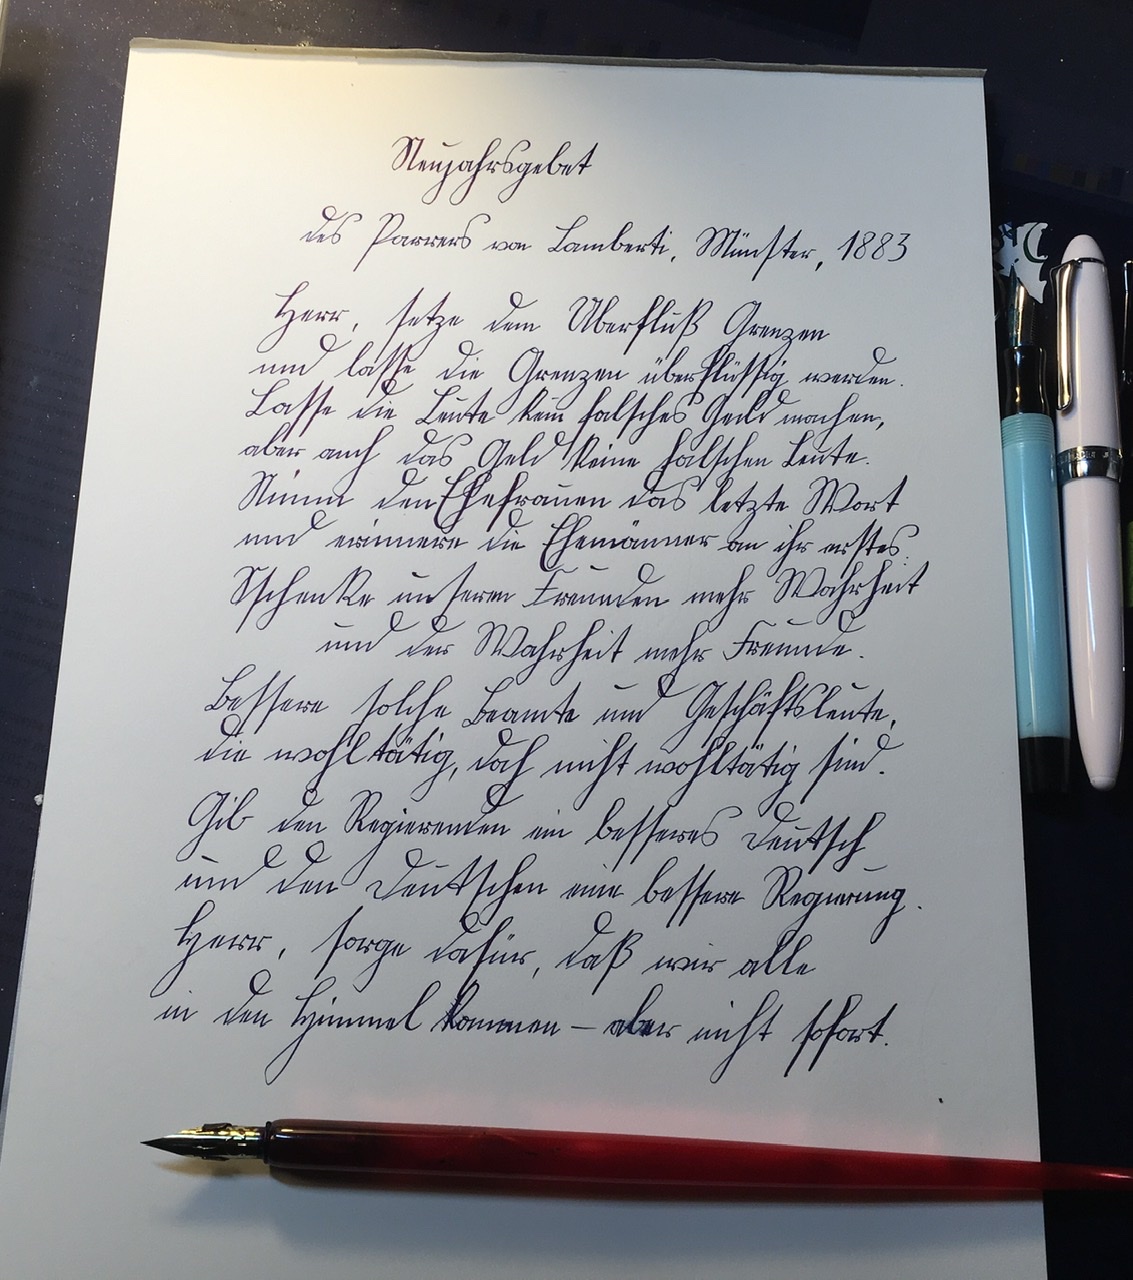 Neujahrsgebet
des Parrers von Lamberti, Münster, 1883
Herr, setze dem Überfluß Grenzen
und lasse die Grenzen überflüssig werden.
Lasse die Leute kein falsches Geld machen,
aber auch das Geld keine falschen Leute.
Nimm den Ehefrauen das letzte Wort
und erinnere die Ehemänner an ihr erstes.
Schenke unseren Freunden mehr Wahrheit
und der Wahrheit mehr Freunde.
Bessere solche Beamte und Geschäftsleute,
die wohltätig, doch nicht wohltätig sind.
Gib den Regierenden ein besseres Deutsch
und den Deutschen eine bessere Regierung.
Herr, sorge dafür, daß wir alle
in den Himmel kommen – aber nicht sofort.